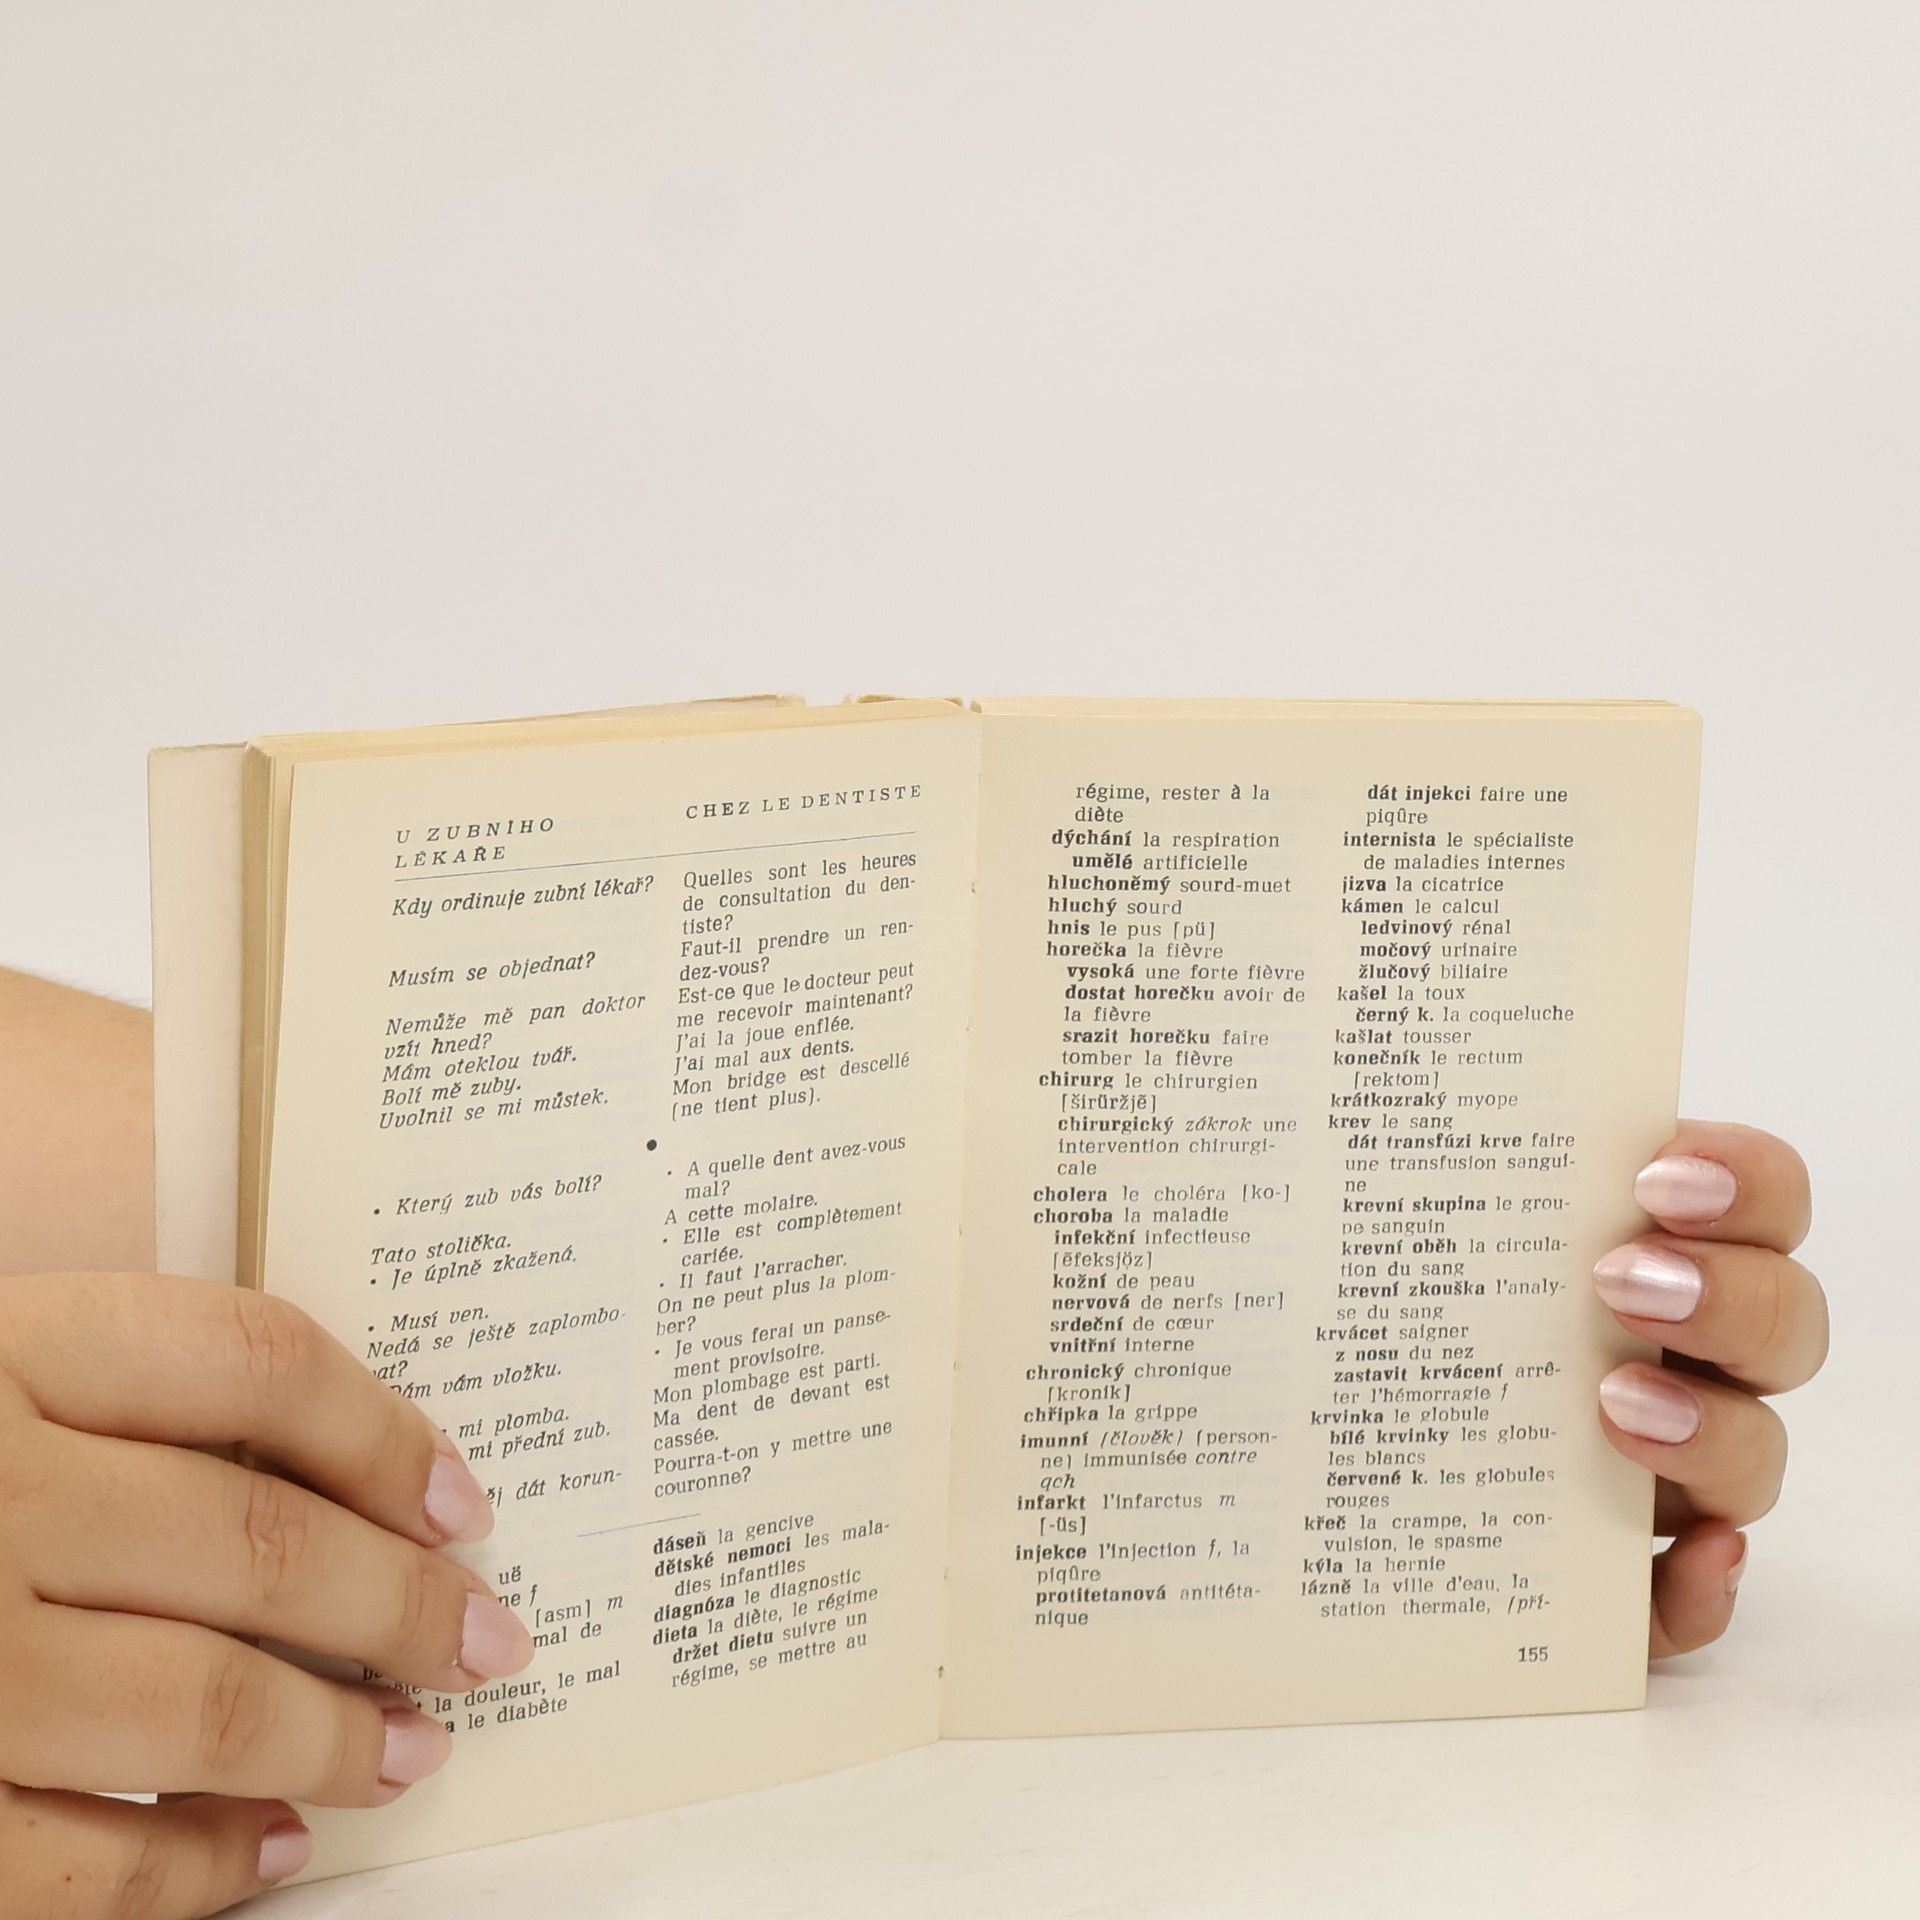 U ZUBNÍHO
LÉKAŘE
CHEZ LE DENTISTE
Kdy ordinuje zubní lékař?
Musím se objednat?
Nemůže mě pan doktor
vzít hned?
Mám oteklou tvář.
Bolí mě zuby.
Uvolnil se mi můstek.
• Který zub vás bolí?
Tato stolička.
• Je úplně zkažená.
• Musí ven.
Nedá se ještě zaplombo-
vat?
Dám vám vložku.
mi plomba.
mi přední zub.
dát korun-
Quelles sont les heures
de consultation du den-
tiste?
Faut-il prendre un ren-
dez-vous?
Est-ce que le docteur peut
me recevoir maintenant?
J'ai la joue enflée.
J'ai mal aux dents.
Mon bridge est descellé
(ne tient plus).
●
• A quelle dent avez-vous
mal?
A cette molaire.
• Elle est complètement
cariée.
• Il faut l'arracher.
On ne peut plus la plom-
ber?
• Je vous ferai un panse-
ment provisoire.
Mon plombage est parti.
Ma dent de devant est
cassée.
Pourra-t-on y mettre une
couronne?
[asm] m
mal de
la douleur, le mal
le diabète
dáseň la gencive
dětské nemoci les mala-
dies infantiles
diagnóza le diagnostic
dieta la diète, le régime
držet dietu suivre un
régime, se mettre au
régime, rester à la
diète
dýchání la respiration
umělé artificielle
hluchoněmý sourd-muet
hluchý sourd
hnis le pus [pü]
horečka la fièvre
vysoká une forte fièvre
dostat horečku avoir de
la fièvre
srazit horečku faire
tomber la fièvre
chirurg le chirurgien
[širüržjẽ]
chirurgický zákrok une
intervention chirurgi-
cale
cholera le choléra [ko-]
choroba la maladie
infekční infectieuse
[ẽfeksjöz]
kožní de peau
nervová de nerfs [ner]
srdeční de cœur
vnitřní interne
chronický chronique
[kronik]
chřipka la grippe
imunní (člověk) (person-
ne) immunisée contre
qch
infarkt l'infarctus m
[-üs]
injekce l'injection f, la
piqûre
protitetanová antitéta-
nique
dát injekci faire une
piqûre
internista le spécialiste
de maladies internes
jizva la cicatrice
kámen le calcul
ledvinový rénal
močový urinaire
žlučový biliaire
kašel la toux
černý k. la coqueluche
kašlat tousser
konečník le rectum
[rektom]
krátkozraký myope
krev le sang
dát transfúzi krve faire
une transfusion sangui-
ne
krevní skupina le grou-
pe sanguin
krevní oběh la circula-
tion du sang
krevní zkouška l'analy-
se du sang
krvácet saigner
z nosu du nez
zastavit krvácení arrê-
ter l'hémorragie f
krvinka le globule
bílé krvinky les globu-
les blancs
červené k. les globules
rouges
křeč la crampe, la con-
vulsion, le spasme
kýla la hernie
lázně la ville d'eau, la
station thermale, (pří-
155